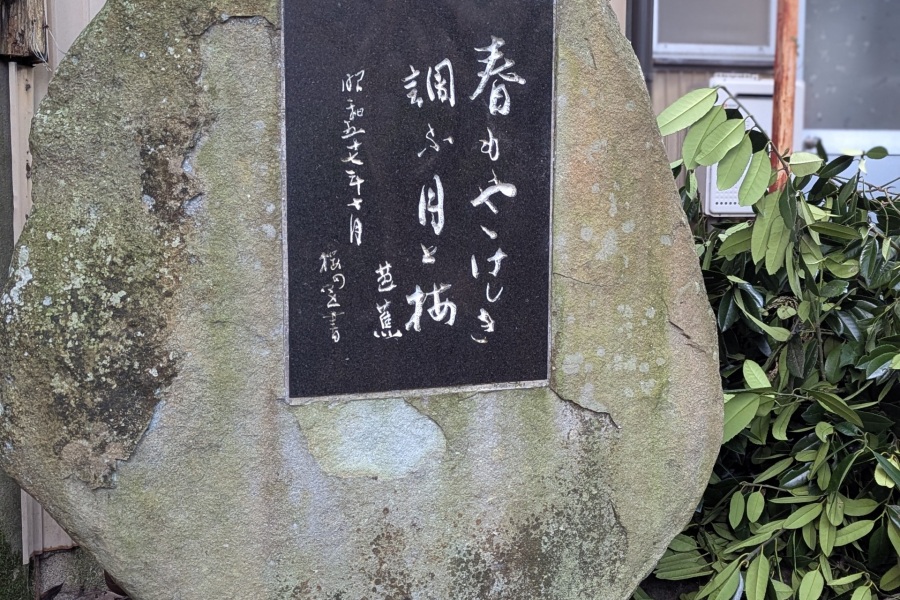 春もやゝけしき
調ふ月と梅
芭蕉
昭和五十七年十月
書